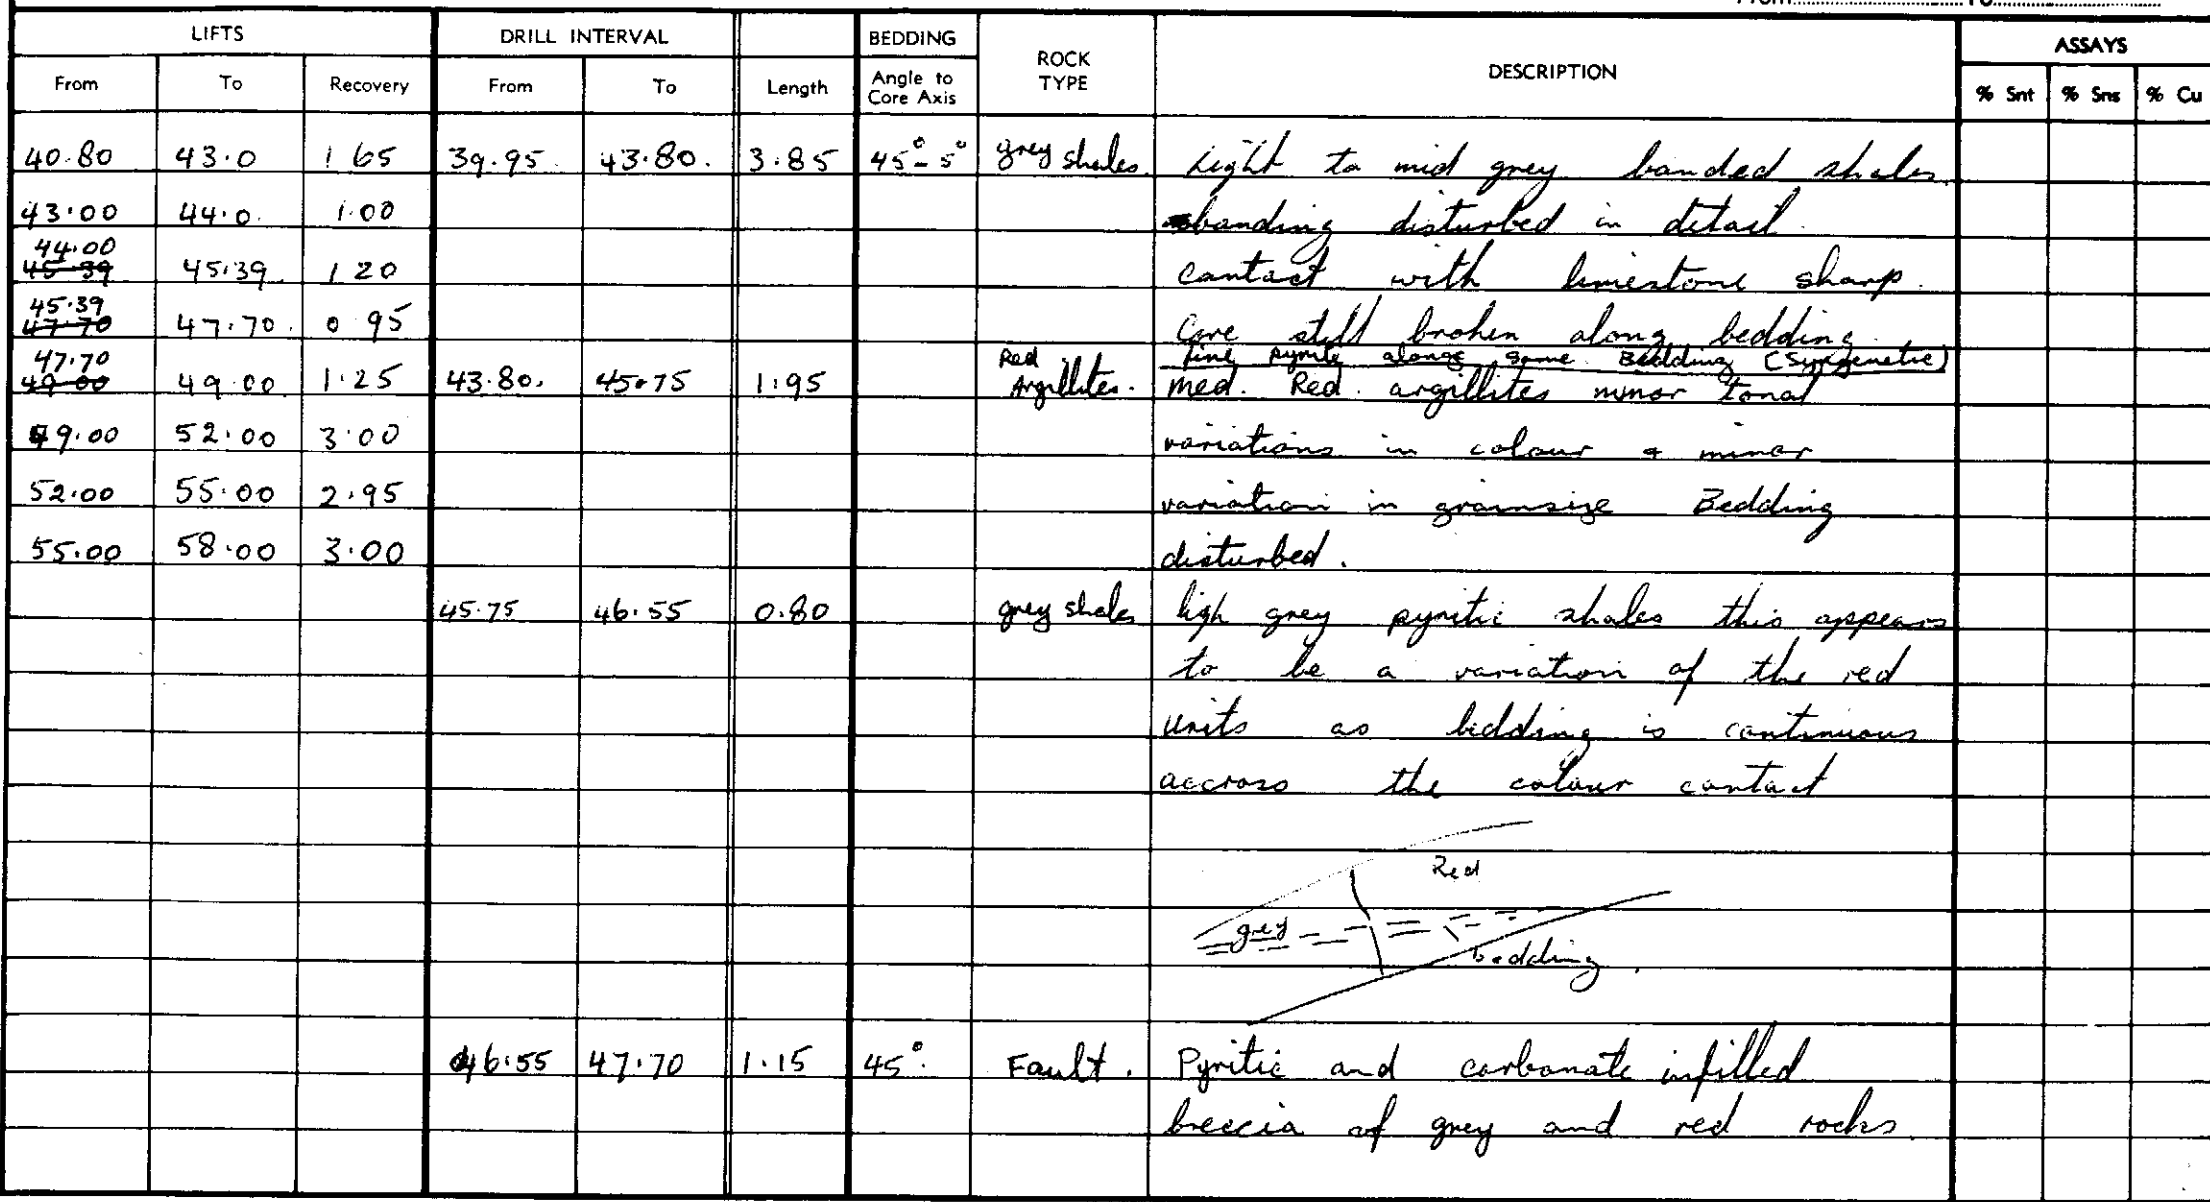 From To
LIFTS DRILL INTERVAL BEDDING ROCK TYPE DESCRIPTION ASSAYS
From To Recovery From To Length Angle to Core Axis % Snt % Sns % Cu
40.80 43.0 1 65 39.95. 43.80. 3.85 45°-5° grey shales. Light to mid grey banded shales
43.00 44.0. 1.00 banding disturbed in detail.
44.00
45.39 45.39 1 20 contact with limestone sharp.
45.39
47.70 47.70. 0 95 Core still broken along bedding
47.70 Red fine pyrite along some Bedding (Syngenetic)
49.00 49.00 1.25 43.80. 45.75 1.95 Argillites. med. Red. argillites minor tonal
49.00 52.00 3.00 variations in colour & minor
52.00 55.00 2.95 variation in grainsize Bedding
55.00 58.00 3.00 disturbed.
45.75 46.55 0.80 grey shales ligh grey pyritic shales this appears
to be a variation of the red
units as bedding is continuous
accross the colour contact
Red
grey
bedding.
46.55 47.70 1.15 45°. Fault. Pyritic and carbonate infilled
breccia of grey and red rocks.